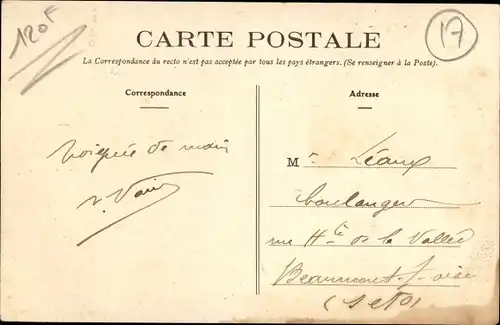 120F
17
CARTE POSTALE
La Correspondance du recto n'est pas acceptée par tous les pays étrangers. (Se renseigner à la Poste).
Correspondance
Poignée de main
Adresse
Mr Léaux
boulanger
rue Hte de la Vallée
Beaumont-s-oise
(S et O)